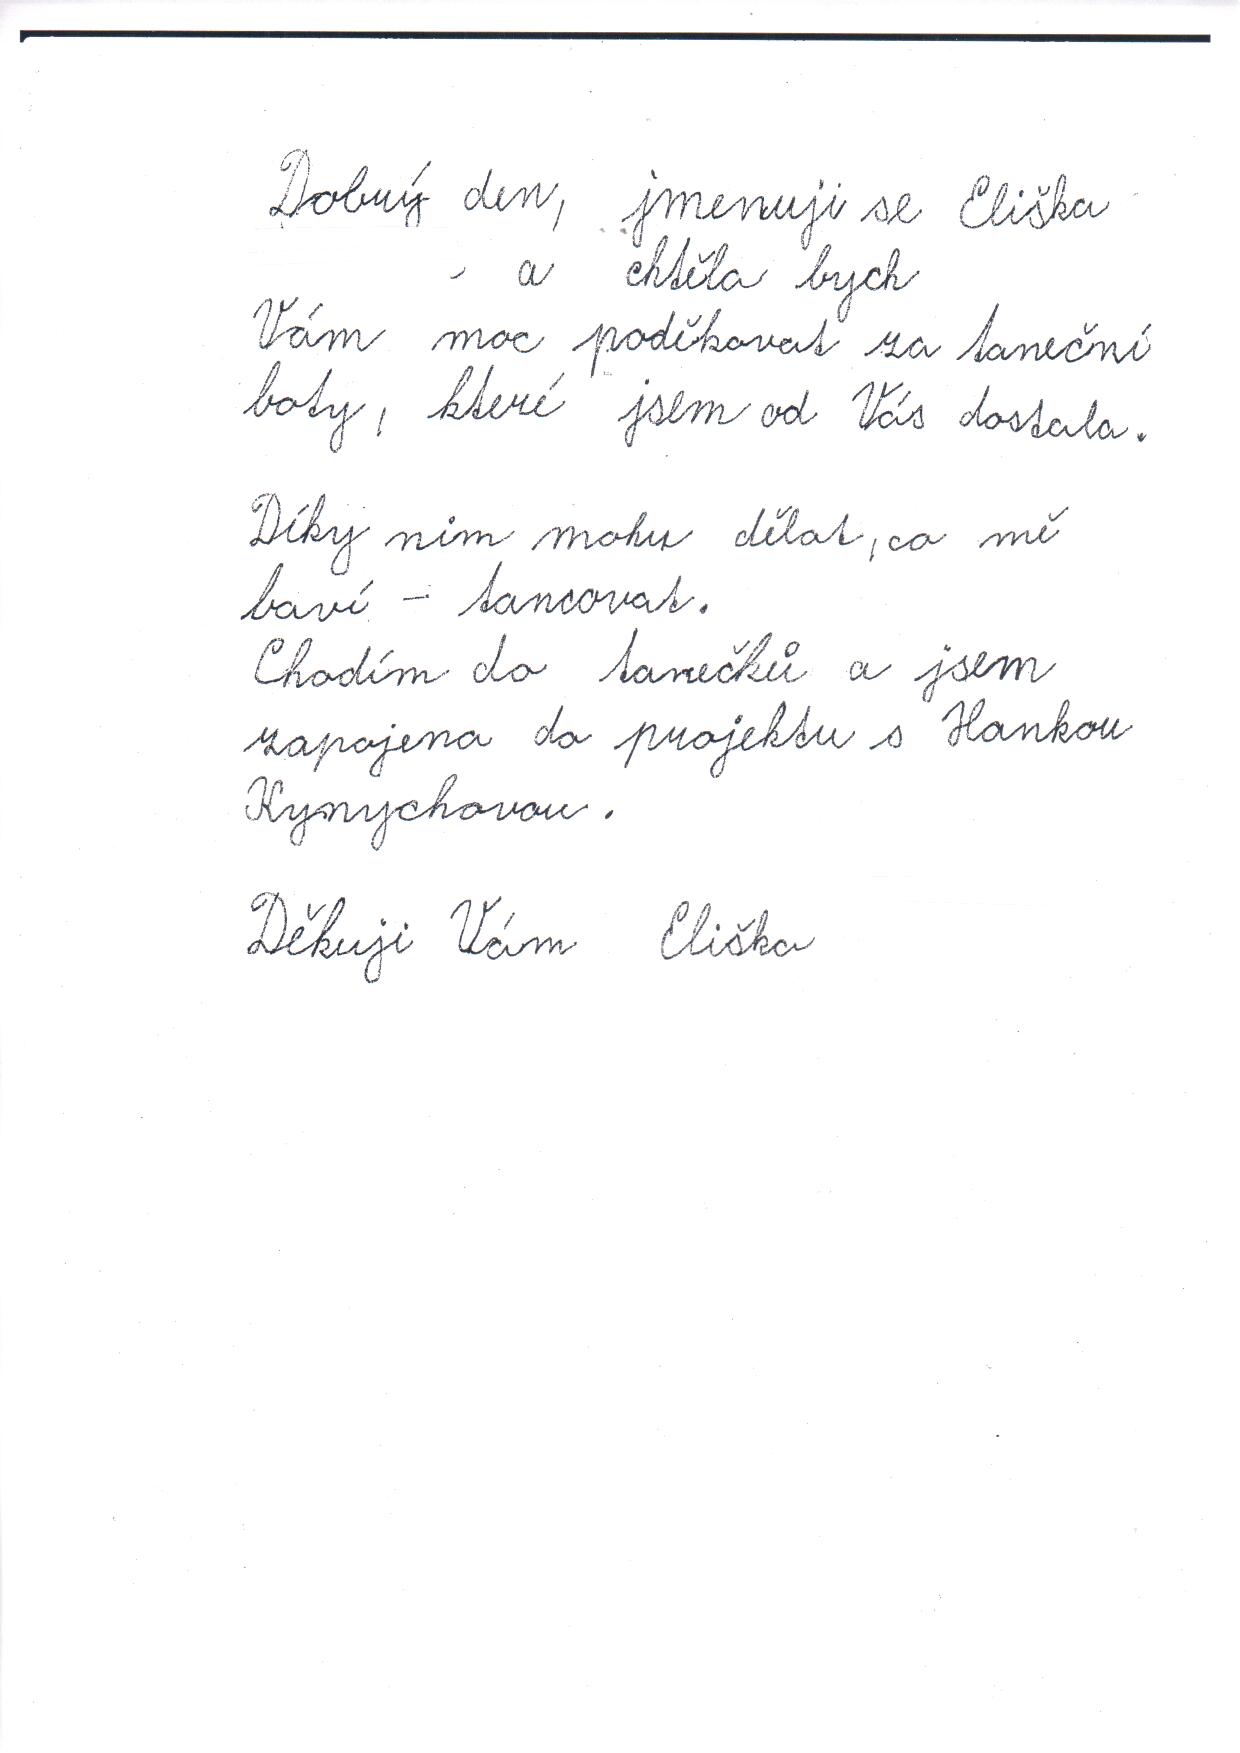 Dobrý den, jmenuji se Eliška
a chtěla bych
Vám moc poděkovat za taneční
boty, které jsem od Vás dostala.
Díky nim mohu dělat, co mě
baví - tancovat.
Chodím do tanečků a jsem
zapojena do projektu s Hankou
Kynychovou.
Děkuji Vám Eliška